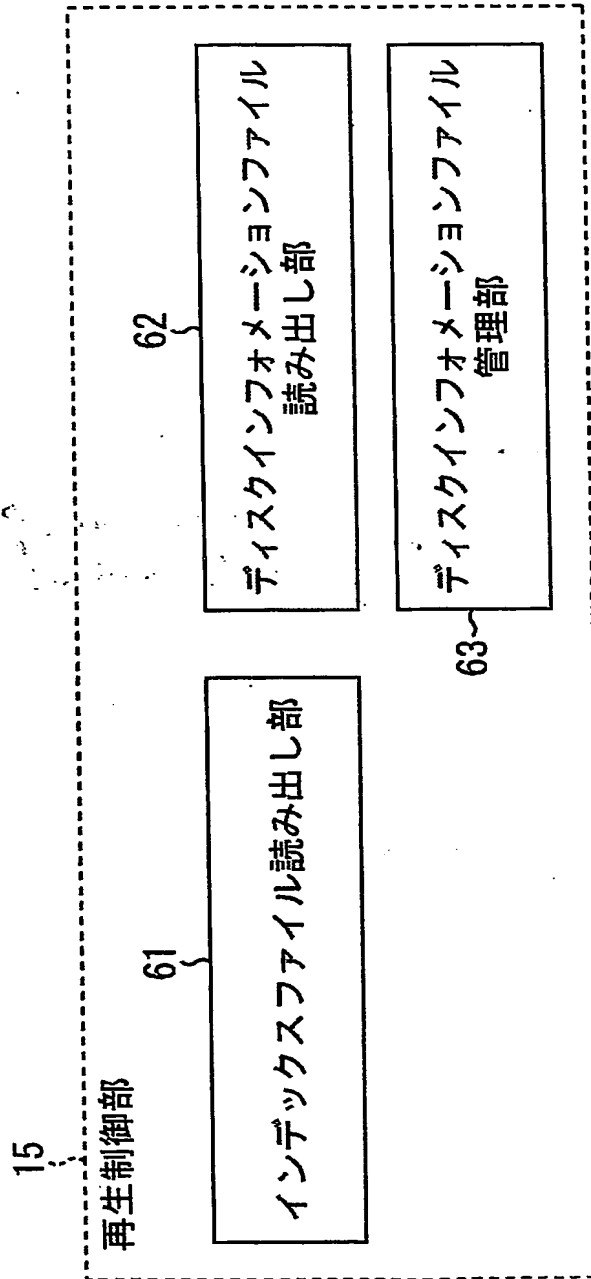 15
再生制御部
61
インデックスファイル読み出し部
62
ディスクインフォメーションファイル
読み出し部
63
ディスクインフォメーションファイル
管理部